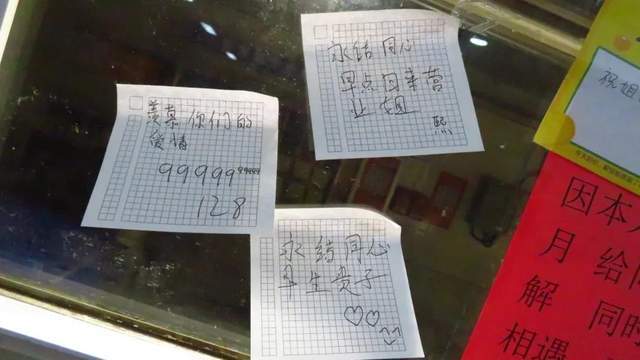 永结同心
早点回来营
业 姐
熙
羡慕你们的
爱情
9999999999
128
永结同心
早生贵子
♡♡
祝姐
因本
月给
解同时
相遇